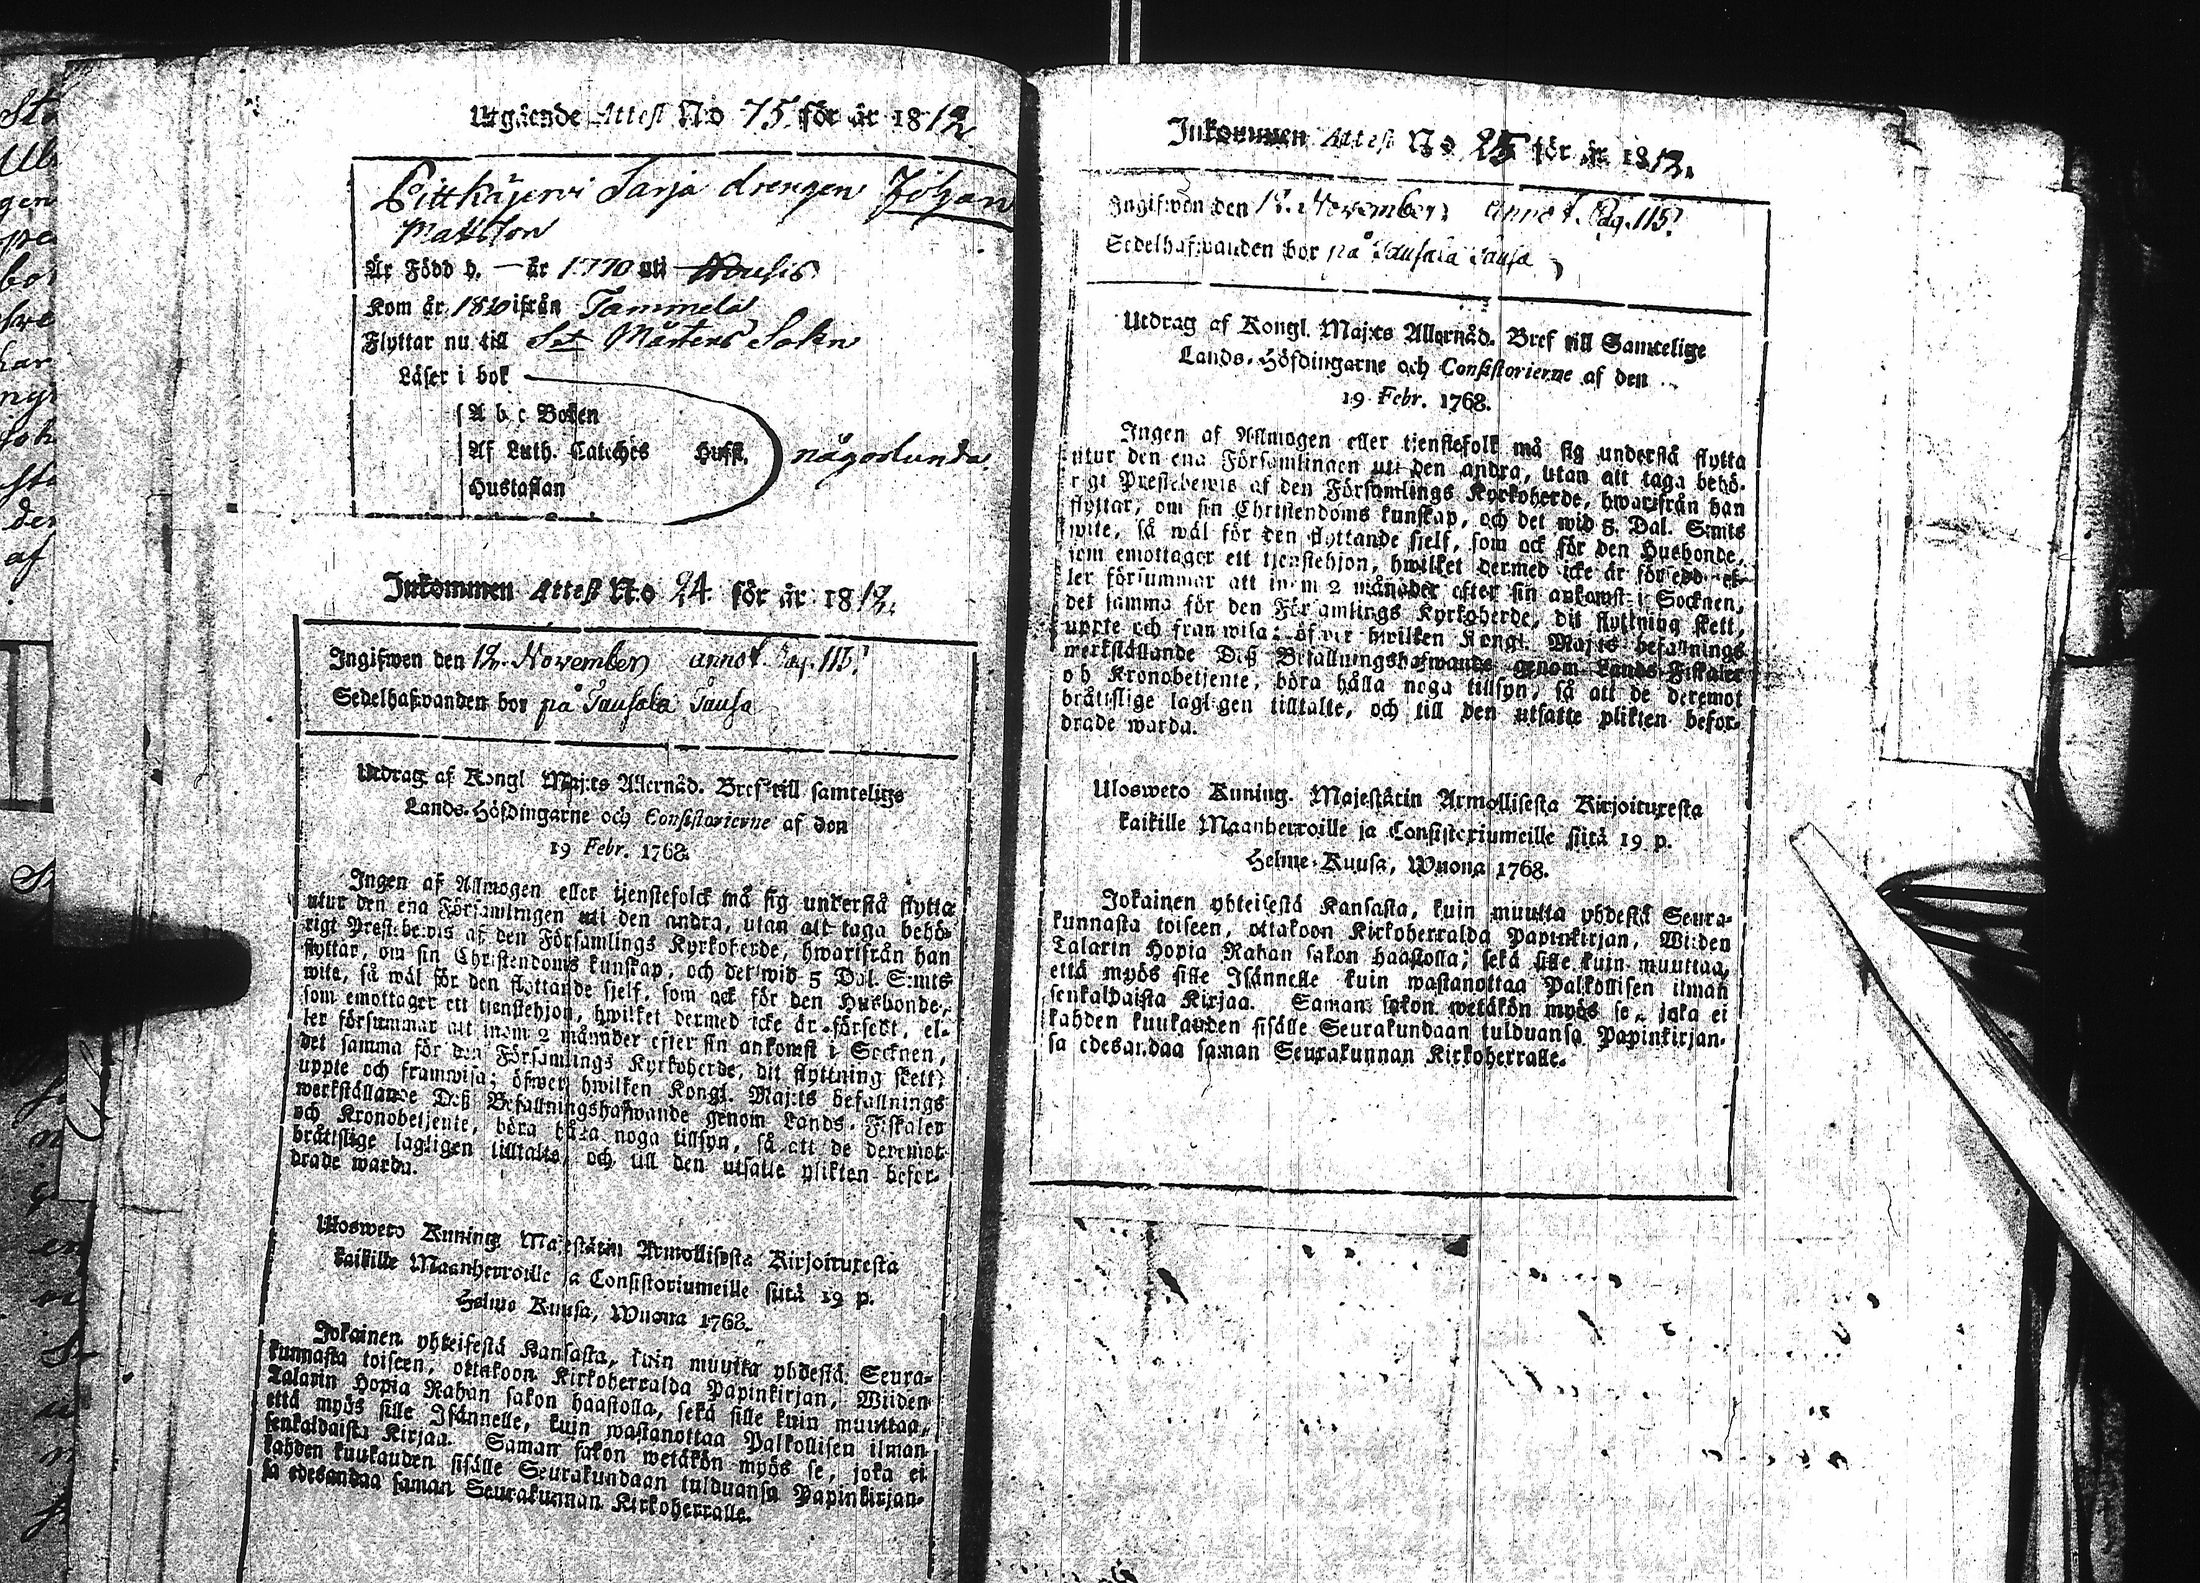 Utgående Attest N:o 75 för år 1812
Pittkäjervi Sarja drengen Johan
Mattsson
Är Född d. — år 1770 uti Nousis
Kom år 1810 ifrån Tammela
Flyttar nu till S:t Mårtens Sokn
Läser i bok
A b c Boken
Af Luth. Catches Hufft.
någorlunda
Hustaflan
Inkommen Attest N:o 24 för år 1812.
Ingifwen den 12. November annot. Pag. 115.
Sedelhafwanden bor på Tausala Tausa
Utdrag af Kongl Maj:ts Allernåd. Bref till samtelige
Lands-Höfdingarne och Consistorierne af den
19 Febr. 1768.
Ingen af Allmogen eller tjenstefolck må sig understå flytta
utur den ena Församlingen uti den andra, utan att taga behö-
rigt Prestebewis af den Församlings Kyrkoherde, hwarifrån han
flyttar, om sin Christendoms kunskap, och det wid 5 Dal. S:mts
wite, så wäl för den flyttande sjelf, som ock för den Husbonde,
som emottager ett tjenstehjon, hwilket dermed icke är försedt, el-
ler försummar att inom 2 månader efter sin ankomst i Socknen,
det samma för den Församlings Kyrkoherde, dit flyttning skett,
uppte och framwisa; öfwer hwilken Kongl. Maj:ts befallnings
werkställande Deß Befallningshafwande genom Lands-Fiskaler
och Kronobetjente, böra hålla noga tillsyn, så att de deremot
bråttslige lagligen tilltalte, och till den utsatte plikten befor-
drade warda.
Ulosweto Kuning Majestätin Armollisesta Kirjoituxesta
kaikille Maanherroille ja Consistoriumeille siitä 19 p.
Helme Kuusa, Wuona 1768.
Jokainen yhteisestä Kansasta, kuin muutta yhdestä Seura-
kunnasta toiseen, ottakoon Kirkoherralda Papinkirjan, Wiiden
Talarin Hopia Rahan sakon haastolla, sekä sille kuin muuttaa,
että myös sille Isännelle, kuin wastanottaa Palkollisen ilman
senkaldaista Kirjaa. Saman sakon wetäkön myös se, joka ei
kahden kuukauden sisälle Seurakundaan tulduansa Papinkirjan-
sa edesandaa saman Seurakunnan Kirkoherralle.
Inkommen Attest No 25 för år 1812.
Ingifwen den 12. November annot. Pag. 115.
Sedelhafwanden bor på Tausala Tausa
Utdrag af Kongl. Maj:ts Allernåd. Bref till Samtelige
Lands-Höfdingarne och Consistorierne af den
19 Febr. 1768.
Ingen af Allmogen eller tjenstefolk må sig understå flytta
utur den ena Församlingen uti den andra, utan att taga behö-
rigt Prestebewis af den Församlings Kyrkoherde, hwarifrån han
flyttar, om sin Christendoms kunskap, och det wid 5. Dal. S:mts
wite, så wäl för den flyttande sjelf, som ock för den Husbonde,
som emottager ett tjenstehjon, hwilket dermed icke är försedt el-
ler försummar att inom 2 månader efter sin ankomst i Socknen,
det samma för den Församlings Kyrkoherde, dit flyttning skett,
uppte och framwisa; öfwer hwilken Kongl. Maj:ts befallnings
werkställande Deß Befallningshafwande genom Lands-Fiskaler
och Kronobetjente, böra hålla noga tillsyn, så att de deremot
bråttslige lagligen tilltalte, och till den utsatte plikten befor-
drade warda.
Ulosweto Kuning. Majestätin Armollisesta Kirjoituxesta
kaikille Maanherroille ja Consistoriumeille siitä 19 p.
Helme-Kuusa, Wuona 1768.
Jokainen yhteisestä Kansasta, kuin muutta yhdestä Seura-
kunnasta toiseen, ottakoon Kirkoherralda Papinkirjan, Wiiden
Talarin Hopia Rahan sakon haastolla; sekä sille kuin muuttaa,
että myös sille Isännelle kuin wastanottaa Palkollisen ilman
senkaldaista Kirjaa. Saman sakon wetäkön myös se, joka ei
kahden kuukauden sisälle Seurakundaan tulduansa Papinkirjan-
sa edesandaa saman Seurakunnan Kirkoherralle.